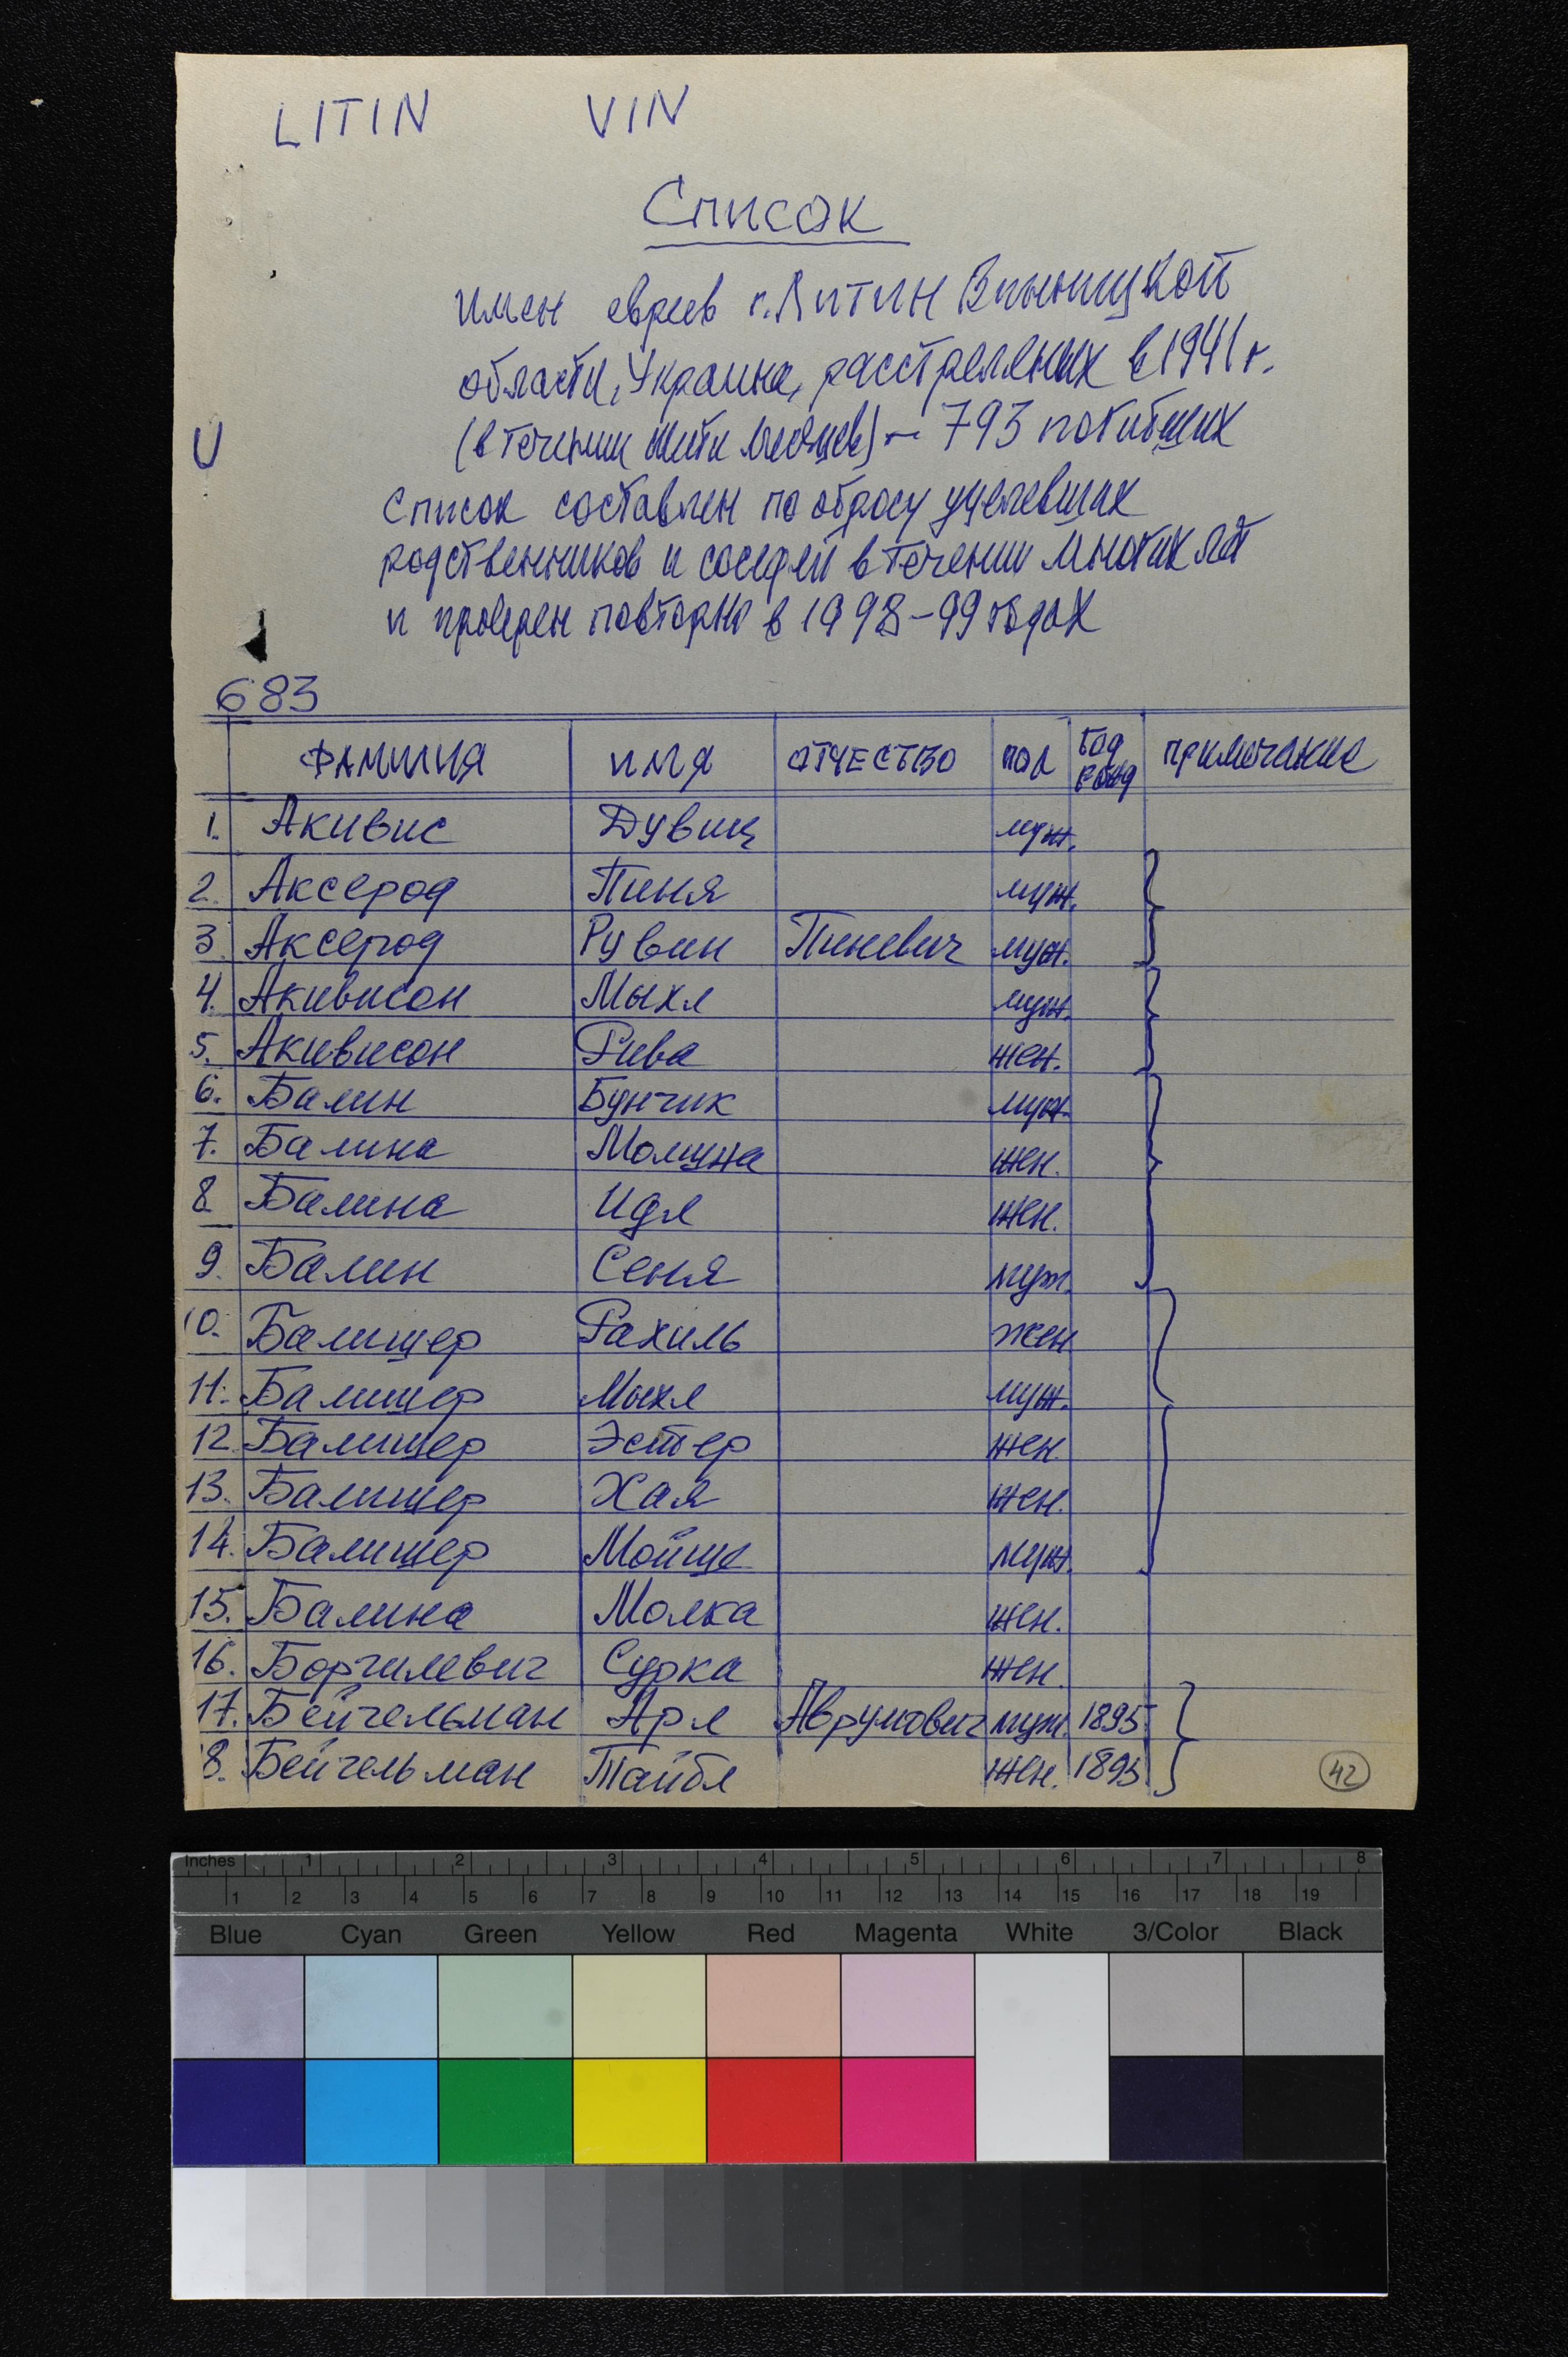 LITIN VIN
Список
имен евреев г. Литин Винницкой
области, Украина, расстреляных в 1941 г.
(в течении месяцев) — 793 погибших
U
Список составлен по опросу уцелевших
родственников и соседей в течении многих лет
и проверен повторно в 1998-99 годах
683
ФАМИЛИЯ ИМЯ ОТЧЕСТВО ПОЛ год рожд примечание
1. Акивис Дувид муж.
2. Аксерод Пиня муж.
3. Аксерод Рувин Пиневич муж.
4. Акивисон Мыхл муж.
5. Акивисон Рива жен.
6. Балин Бунчик муж.
7. Балина жен.
8. Балина Идл жен.
9. Балин Сеня муж.
10. Балишер Рахиль жен
11. Балишер Мыхл муж.
12. Балишер Эстер жен.
13. Балишер Хая жен.
14. Балишер Мойше муж.
15. Балина Малка жен.
16. Боргилевич Сурка жен.
17. Бейгельман Арл Аврумович муж. 1895
8. Бейгельман Тайбл жен. 1895
42
Inches 1 2 3 4 5 6 7 8
1 2 3 4 5 6 7 8 9 10 11 12 13 14 15 16 17 18 19
Blue Cyan Green Yellow Red Magenta White 3/Color Black